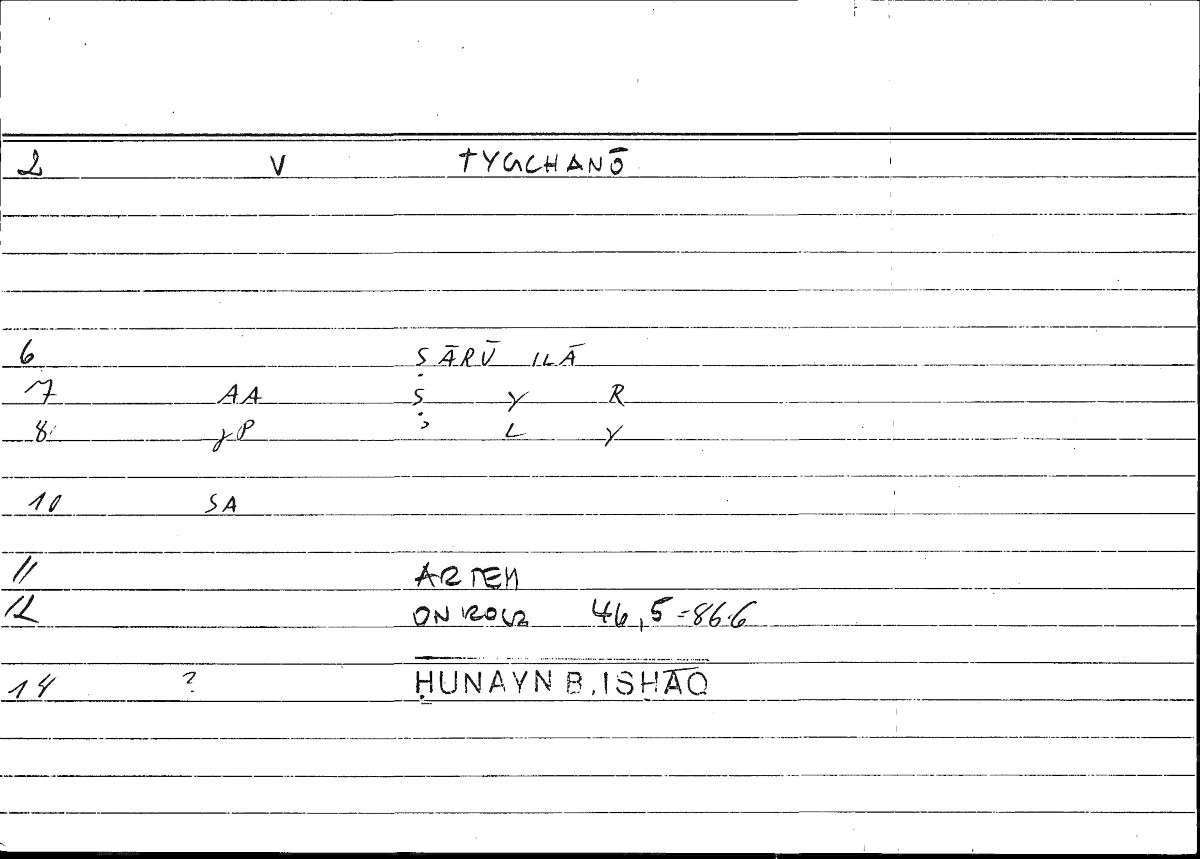 2 V TYGCHANŌ
6 ṢĀRŪ ILĀ
7 AA Ṣ Y R
8 γP ʾ L Y
10 SA
11 ARTEM
12 ONIROCR 46,5=86.6
14 ? ḤUNAYN B. ISḤĀQ